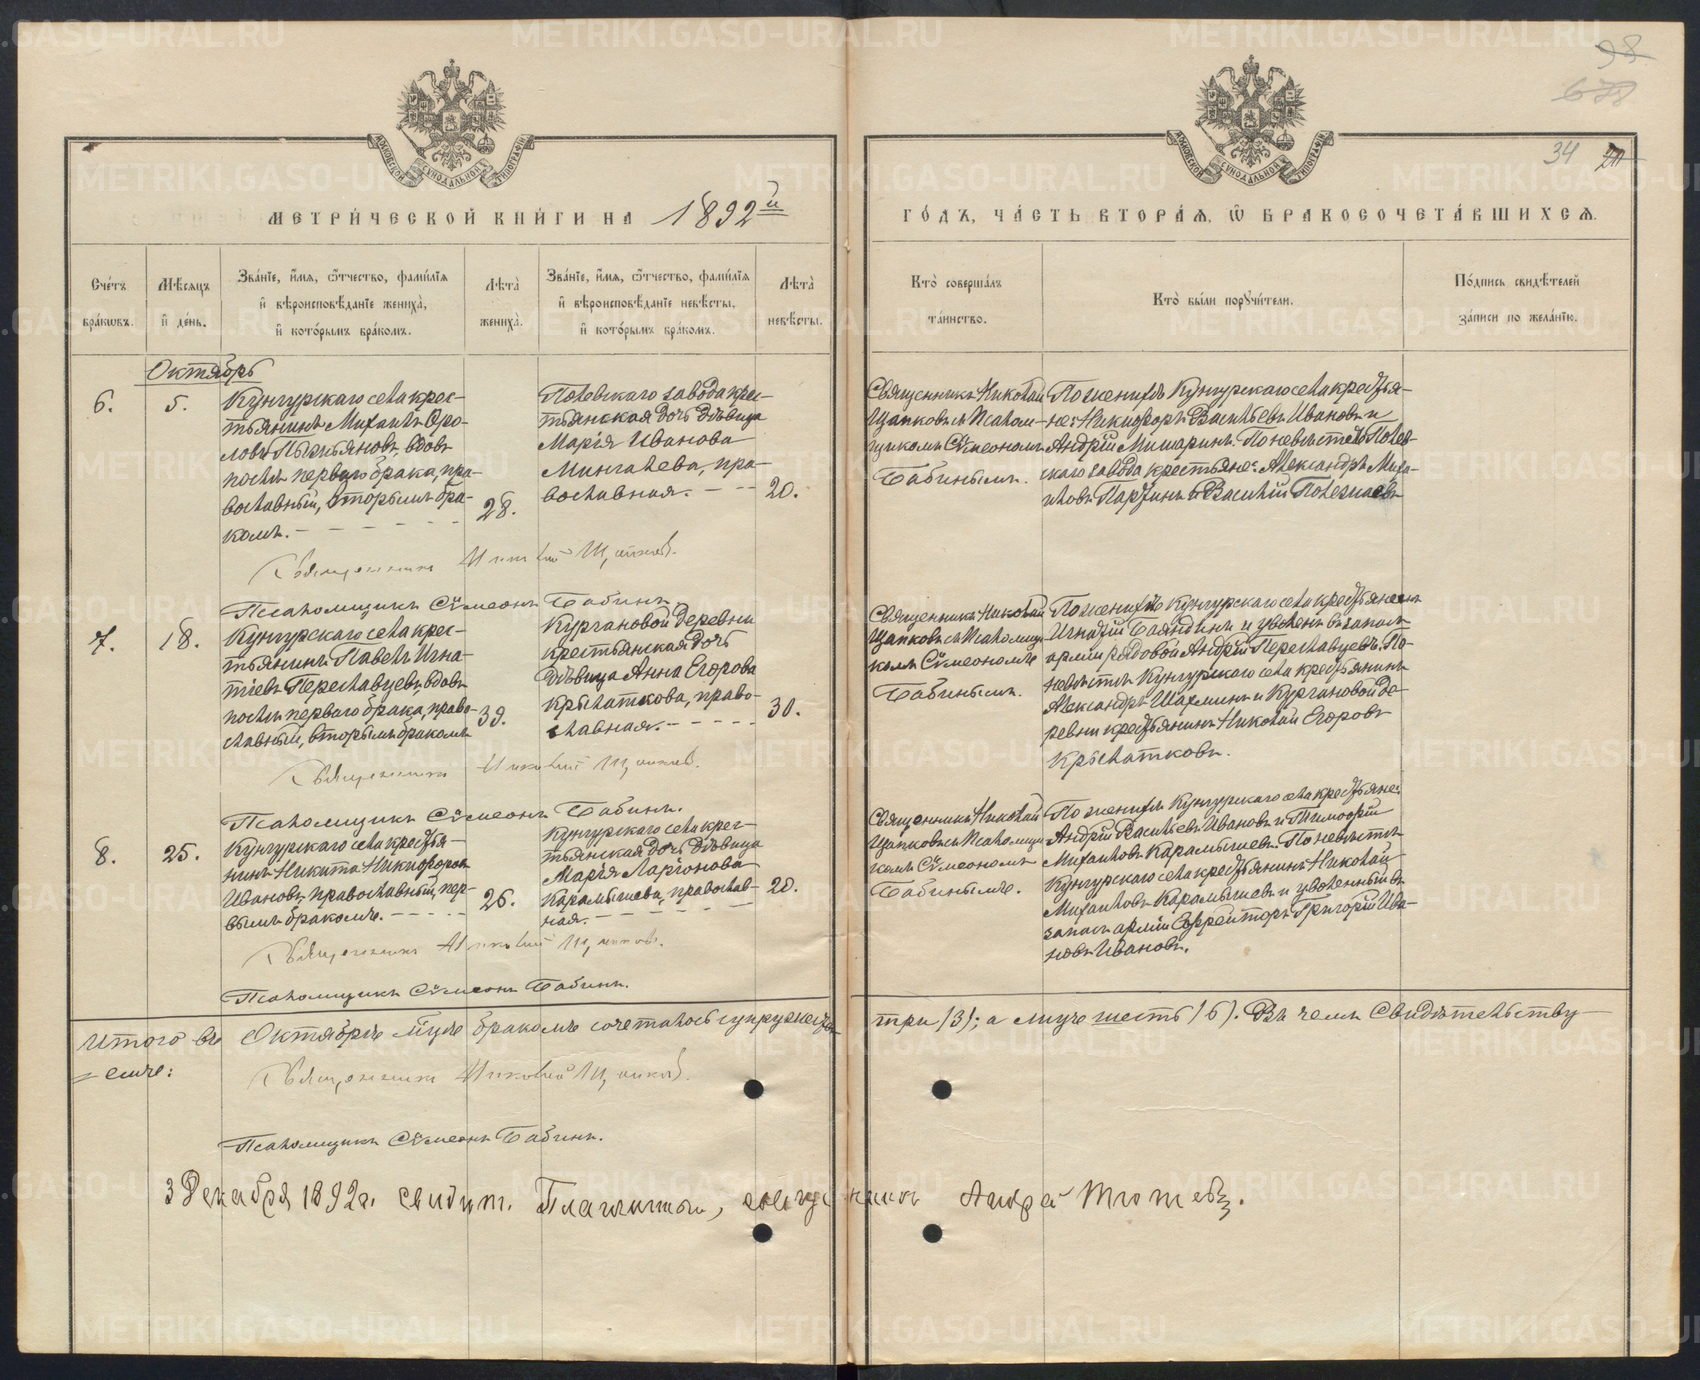 МЕТРИ́ЧЕСКОЙ КНИ́ГИ НА 1892й
ГО́ДЪ, ЧА́СТЬ ВТОРА́Ѧ, Ѿ БРАКОСОЧЕТА́ВШИХСѦ.
34
Сче́тъ бра́кѡвъ.
Мѣ́сѧцъ и҆ де́нь.
Зва́нїе, и҆́мѧ, ѻ҆́тчество, фамилїѧ
и҆ вѣроисповѣ́данїе жениха̀,
и҆ кото́рымъ бра́комъ.
Лѣ́та жениха̀.
Зва́нїе, и҆́мѧ, ѻ҆́тчество, фамилїѧ
и҆ вѣроисповѣ́данїе невѣ́сты,
и҆ кото́рымъ бра́комъ.
Лѣ́та невѣ́сты.
Кто̀ соверша́лъ
та́инство.
Кто̀ бы́ли порꙋчи́тели.
По́дпись свидѣ́телей
за́писи по жела́нїю.
Октябрь
6.
5.
Кунгурскаго села крес-
тьянинъ Михаилъ Фро-
ловъ
вдовъ
послѣ перваго брака, пра-
вославный, вторымъ бра-
комъ.
28.
Полевскаго завода крес-
тьянская дочь дѣвица
Марія Иванова
Мингалева, пра-
вославная.
20.
Священникъ Николай
Щапковъ съ Псалом-
щикомъ Сѵмеономъ
Бабинымъ.
По женихѣ Кунгурскаго села крестья-
не: Никифоръ Васильевъ Ивановъ и
Андрей Мишаринъ. По невѣстѣ Полев-
скаго завода крестьяне: Александръ Миха-
иловъ
и Василій
Священникъ Николай Щапковъ.
Псаломщикъ Сѵмеонъ Бабинъ.
7.
18.
Кунгурскаго села крес-
тьянинъ Павелъ Игна-
тіевъ Переславцевъ, вдовъ
послѣ перваго брака, право-
славный, вторымъ бракомъ
39.
Кургановой деревни
крестьянская дочь
дѣвица Анна Егорова
Крылаткова, право-
славная.
30.
Священникъ Николай
Щапковъ съ Псаломщи-
комъ Сѵмеономъ
Бабинымъ.
По женихѣ Кунгурскаго села крестьянинъ
Игнатій
и уволен. въ запасъ
арміи рядовой Андрей Переславцевъ. По
невѣстѣ Кунгурскаго села крестьянинъ
Александръ
и Кургановой де-
ревни крестьянинъ Николай Егоровъ
Крылатковъ.
Священникъ Николай Щапковъ.
Псаломщикъ Сѵмеонъ Бабинъ.
8.
25.
Кунгурскаго села крестья-
нинъ Никита Никифоровъ
Ивановъ, православный, пер-
вымъ бракомъ.
26.
Кунгурскаго села крес-
тьянская дочь дѣвица
Марія Ларіонова
Карамышева, православ-
ная.
20.
Священникъ Николай
Щапковъ съ Псаломщи-
комъ Сѵмеономъ
Бабинымъ.
По женихѣ Кунгурскаго села крестьяне:
Андрей Васильевъ Ивановъ и Тимофей
Михаиловъ Карамышевъ. По невѣстѣ
Кунгурскаго села крестьянинъ Николай
Михаиловъ Карамышевъ и уволенный въ
запасъ арміи Ефрейторъ Григорій Ива-
новъ Ивановъ.
Священникъ Николай Щапковъ.
Псаломщикъ Сѵмеонъ Бабинъ.
Итого въ Октябрѣ м-цѣ бракомъ сочеталось супружествъ три (3); а лицъ шесть (6). Въ чемъ Свидѣтельству-
емъ:
Священникъ Николай Щапковъ.
Псаломщикъ Сѵмеонъ Бабинъ.
3 Декабря 1892 г.